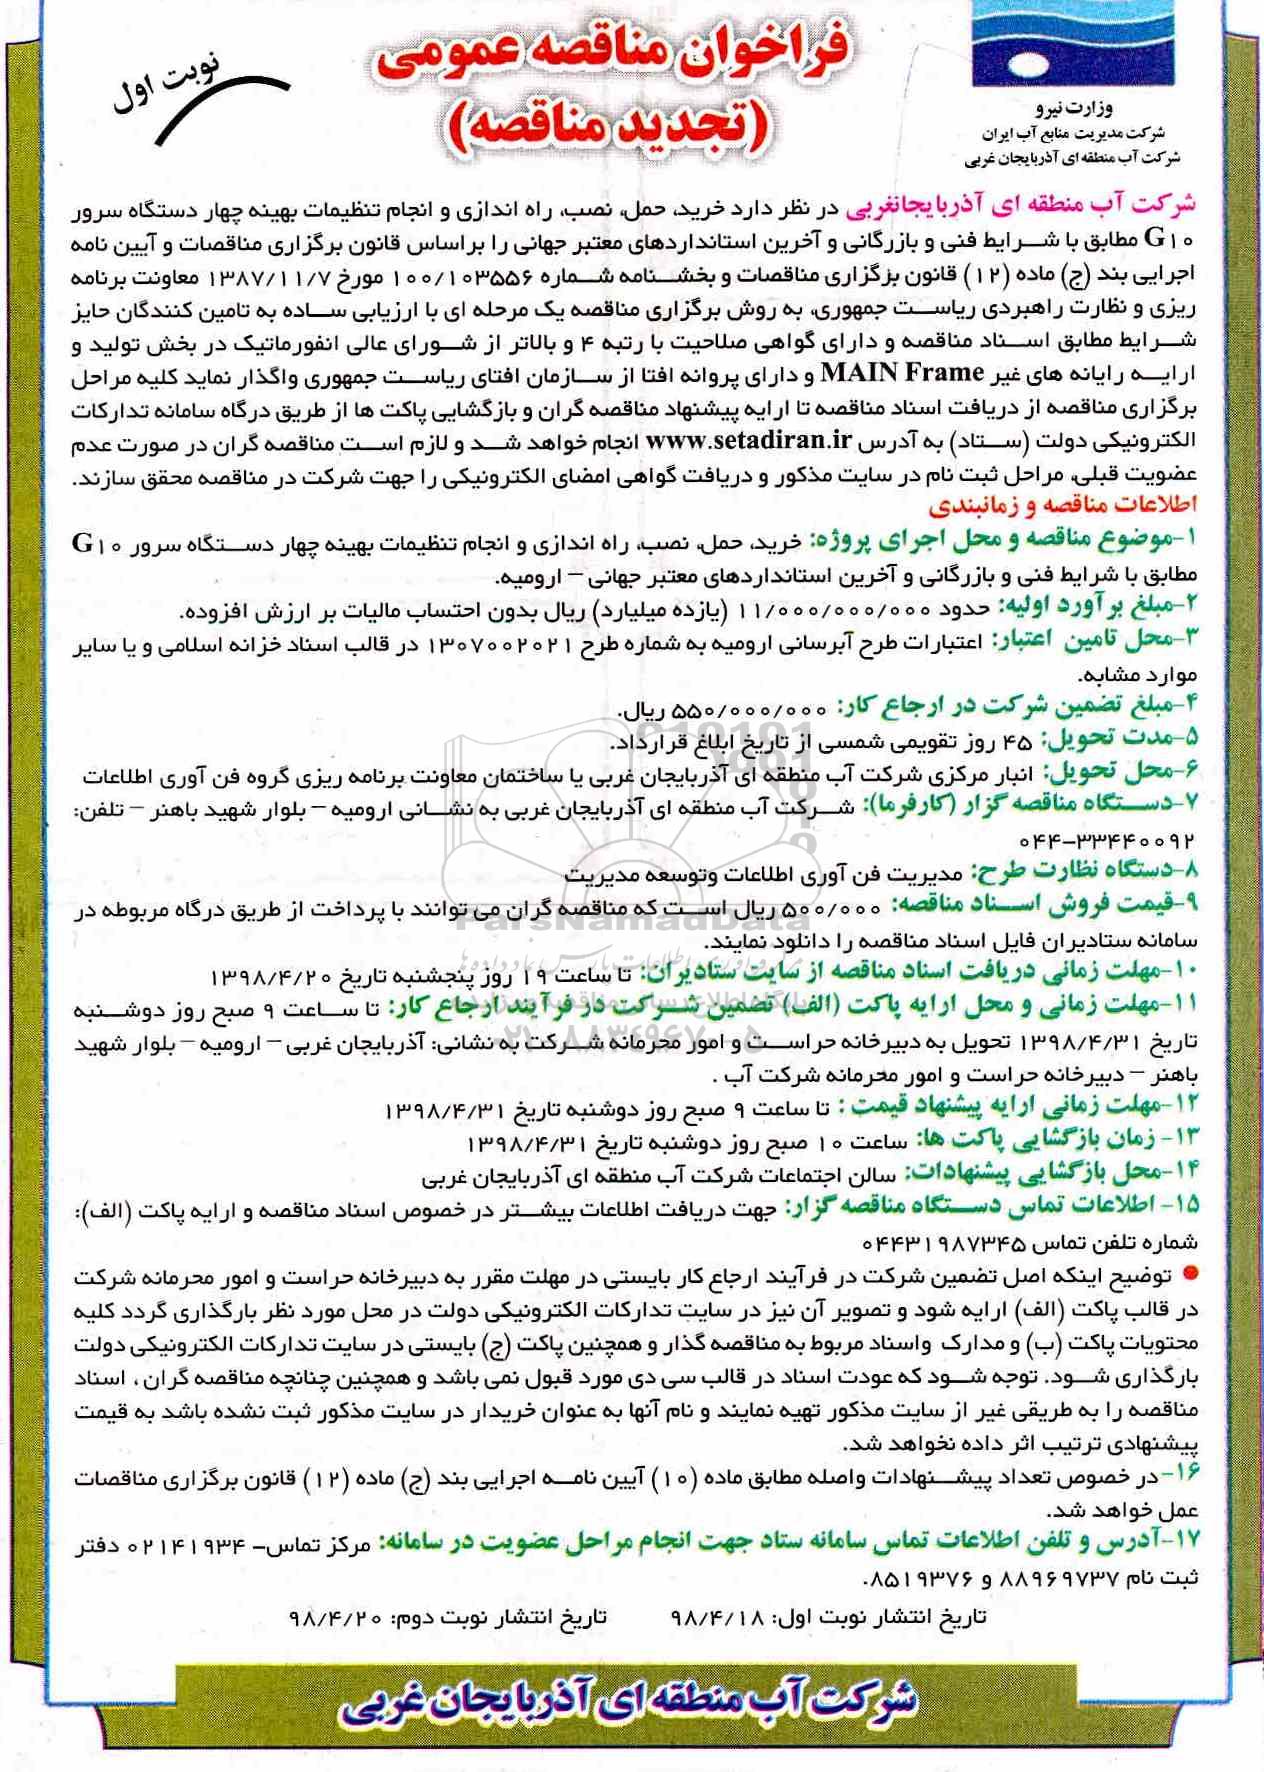 وزارت نیرو
شرکت مدیریت منابع آب ایران
شرکت آب منطقه ای آذربایجان غربی
فراخوان مناقصه عمومی
(تجدید مناقصه)
نوبت اول
شرکت آب منطقه ای آذربایجانغربی در نظر دارد خرید، حمل، نصب، راه اندازی و انجام تنظیمات بهینه چهار دستگاه سرور
G۱۰ مطابق با شرایط فنی و بازرگانی و آخرین استانداردهای معتبر جهانی را براساس قانون برگزاری مناقصات و آیین نامه
اجرایی بند (ج) ماده (۱۲) قانون برگزاری مناقصات و بخشنامه شماره ۱۰۰/۱۰۳۵۵۶ مورخ ۱۳۸۷/۱۱/۷ معاونت برنامه
ریزی و نظارت راهبردی ریاست جمهوری، به روش برگزاری مناقصه یک مرحله ای با ارزیابی ساده به تامین کنندگان حایز
شرایط مطابق اسناد مناقصه و دارای گواهی صلاحیت با رتبه ۴ و بالاتر از شورای عالی انفورماتیک در بخش تولید و
ارایه رایانه های غیر MAIN Frame و دارای پروانه افتا از سازمان افتای ریاست جمهوری واگذار نماید کلیه مراحل
برگزاری مناقصه از دریافت اسناد مناقصه تا ارایه پیشنهاد مناقصه گران و بازگشایی پاکت ها از طریق درگاه سامانه تدارکات
الکترونیکی دولت (ستاد) به آدرس www.setadiran.ir انجام خواهد شد و لازم است مناقصه گران در صورت عدم
عضویت قبلی، مراحل ثبت نام در سایت مذکور و دریافت گواهی امضای الکترونیکی را جهت شرکت در مناقصه محقق سازند.
اطلاعات مناقصه و زمانبندی
۱-موضوع مناقصه و محل اجرای پروژه: خرید، حمل، نصب، راه اندازی و انجام تنظیمات بهینه چهار دستگاه سرور G۱۰
مطابق با شرایط فنی و بازرگانی و آخرین استانداردهای معتبر جهانی – ارومیه.
۲-مبلغ برآورد اولیه: حدود ۱۱/۰۰۰/۰۰۰/۰۰۰ (یازده میلیارد) ریال بدون احتساب مالیات بر ارزش افزوده.
۳-محل تامین اعتبار: اعتبارات طرح آبرسانی ارومیه به شماره طرح ۱۳۰۷۰۰۲۰۲۱ در قالب اسناد خزانه اسلامی و یا سایر
موارد مشابه.
۴-مبلغ تضمین شرکت در ارجاع کار: ۵۵۰/۰۰۰/۰۰۰ ریال.
۵-مدت تحویل: ۴۵ روز تقویمی شمسی از تاریخ ابلاغ قرارداد.
۶-محل تحویل: انبار مرکزی شرکت آب منطقه ای آذربایجان غربی یا ساختمان معاونت برنامه ریزی گروه فن آوری اطلاعات
۷-دستگاه مناقصه گزار (کارفرما): شرکت آب منطقه ای آذربایجان غربی به نشانی ارومیه – بلوار شهید باهنر – تلفن:
۰۴۴-۳۳۴۴۰۰۹۲
۸-دستگاه نظارت طرح: مدیریت فن آوری اطلاعات وتوسعه مدیریت
۹-قیمت فروش اسناد مناقصه: ۵۰۰/۰۰۰ ریال است که مناقصه گران می توانند با پرداخت از طریق درگاه مربوطه در
سامانه ستادیران فایل اسناد مناقصه را دانلود نمایند.
۱۰-مهلت زمانی دریافت اسناد مناقصه از سایت ستادیران: تا ساعت ۱۹ روز پنجشنبه تاریخ ۱۳۹۸/۴/۲۰
۱۱-مهلت زمانی و محل ارایه پاکت (الف) تضمین شرکت در فرآیند ارجاع کار: تا ساعت ۹ صبح روز دوشنبه
تاریخ ۱۳۹۸/۴/۳۱ تحویل به دبیرخانه حراست و امور محرمانه شرکت به نشانی: آذربایجان غربی – ارومیه – بلوار شهید
باهنر – دبیرخانه حراست و امور محرمانه شرکت آب .
۱۲-مهلت زمانی ارایه پیشنهاد قیمت : تا ساعت ۹ صبح روز دوشنبه تاریخ ۱۳۹۸/۴/۳۱
۱۳- زمان بازگشایی پاکت ها: ساعت ۱۰ صبح روز دوشنبه تاریخ ۱۳۹۸/۴/۳۱
۱۴-محل بازگشایی پیشنهادات: سالن اجتماعات شرکت آب منطقه ای آذربایجان غربی
۱۵- اطلاعات تماس دستگاه مناقصه گزار: جهت دریافت اطلاعات بیشتر در خصوص اسناد مناقصه و ارایه پاکت (الف):
شماره تلفن تماس ۰۴۴۳۱۹۸۷۳۴۵
● توضیح اینکه اصل تضمین شرکت در فرآیند ارجاع کار بایستی در مهلت مقرر به دبیرخانه حراست و امور محرمانه شرکت
در قالب پاکت (الف) ارایه شود و تصویر آن نیز در سایت تدارکات الکترونیکی دولت در محل مورد نظر بارگذاری گردد کلیه
محتویات پاکت (ب) و مدارک واسناد مربوط به مناقصه گذار و همچنین پاکت (ج) بایستی در سایت تدارکات الکترونیکی دولت
بارگذاری شود. توجه شود که عودت اسناد در قالب سی دی مورد قبول نمی باشد و همچنین چنانچه مناقصه گران ، اسناد
مناقصه را به طریقی غیر از سایت مذکور تهیه نمایند و نام آنها به عنوان خریدار در سایت مذکور ثبت نشده باشد به قیمت
پیشنهادی ترتیب اثر داده نخواهد شد.
۱۶-در خصوص تعداد پیشنهادات واصله مطابق ماده (۱۰) آیین نامه اجرایی بند (ج) ماده (۱۲) قانون برگزاری مناقصات
عمل خواهد شد.
۱۷-آدرس و تلفن اطلاعات تماس سامانه ستاد جهت انجام مراحل عضویت در سامانه: مرکز تماس- ۰۲۱۴۱۹۳۴ دفتر
ثبت نام ۸۸۹۶۹۷۳۷ و ۸۵۱۹۳۷۶.
تاریخ انتشار نوبت اول: ۹۸/۴/۱۸ تاریخ انتشار نوبت دوم: ۹۸/۴/۲۰
شرکت آب منطقه ای آذربایجان غربی
ParsNamadData